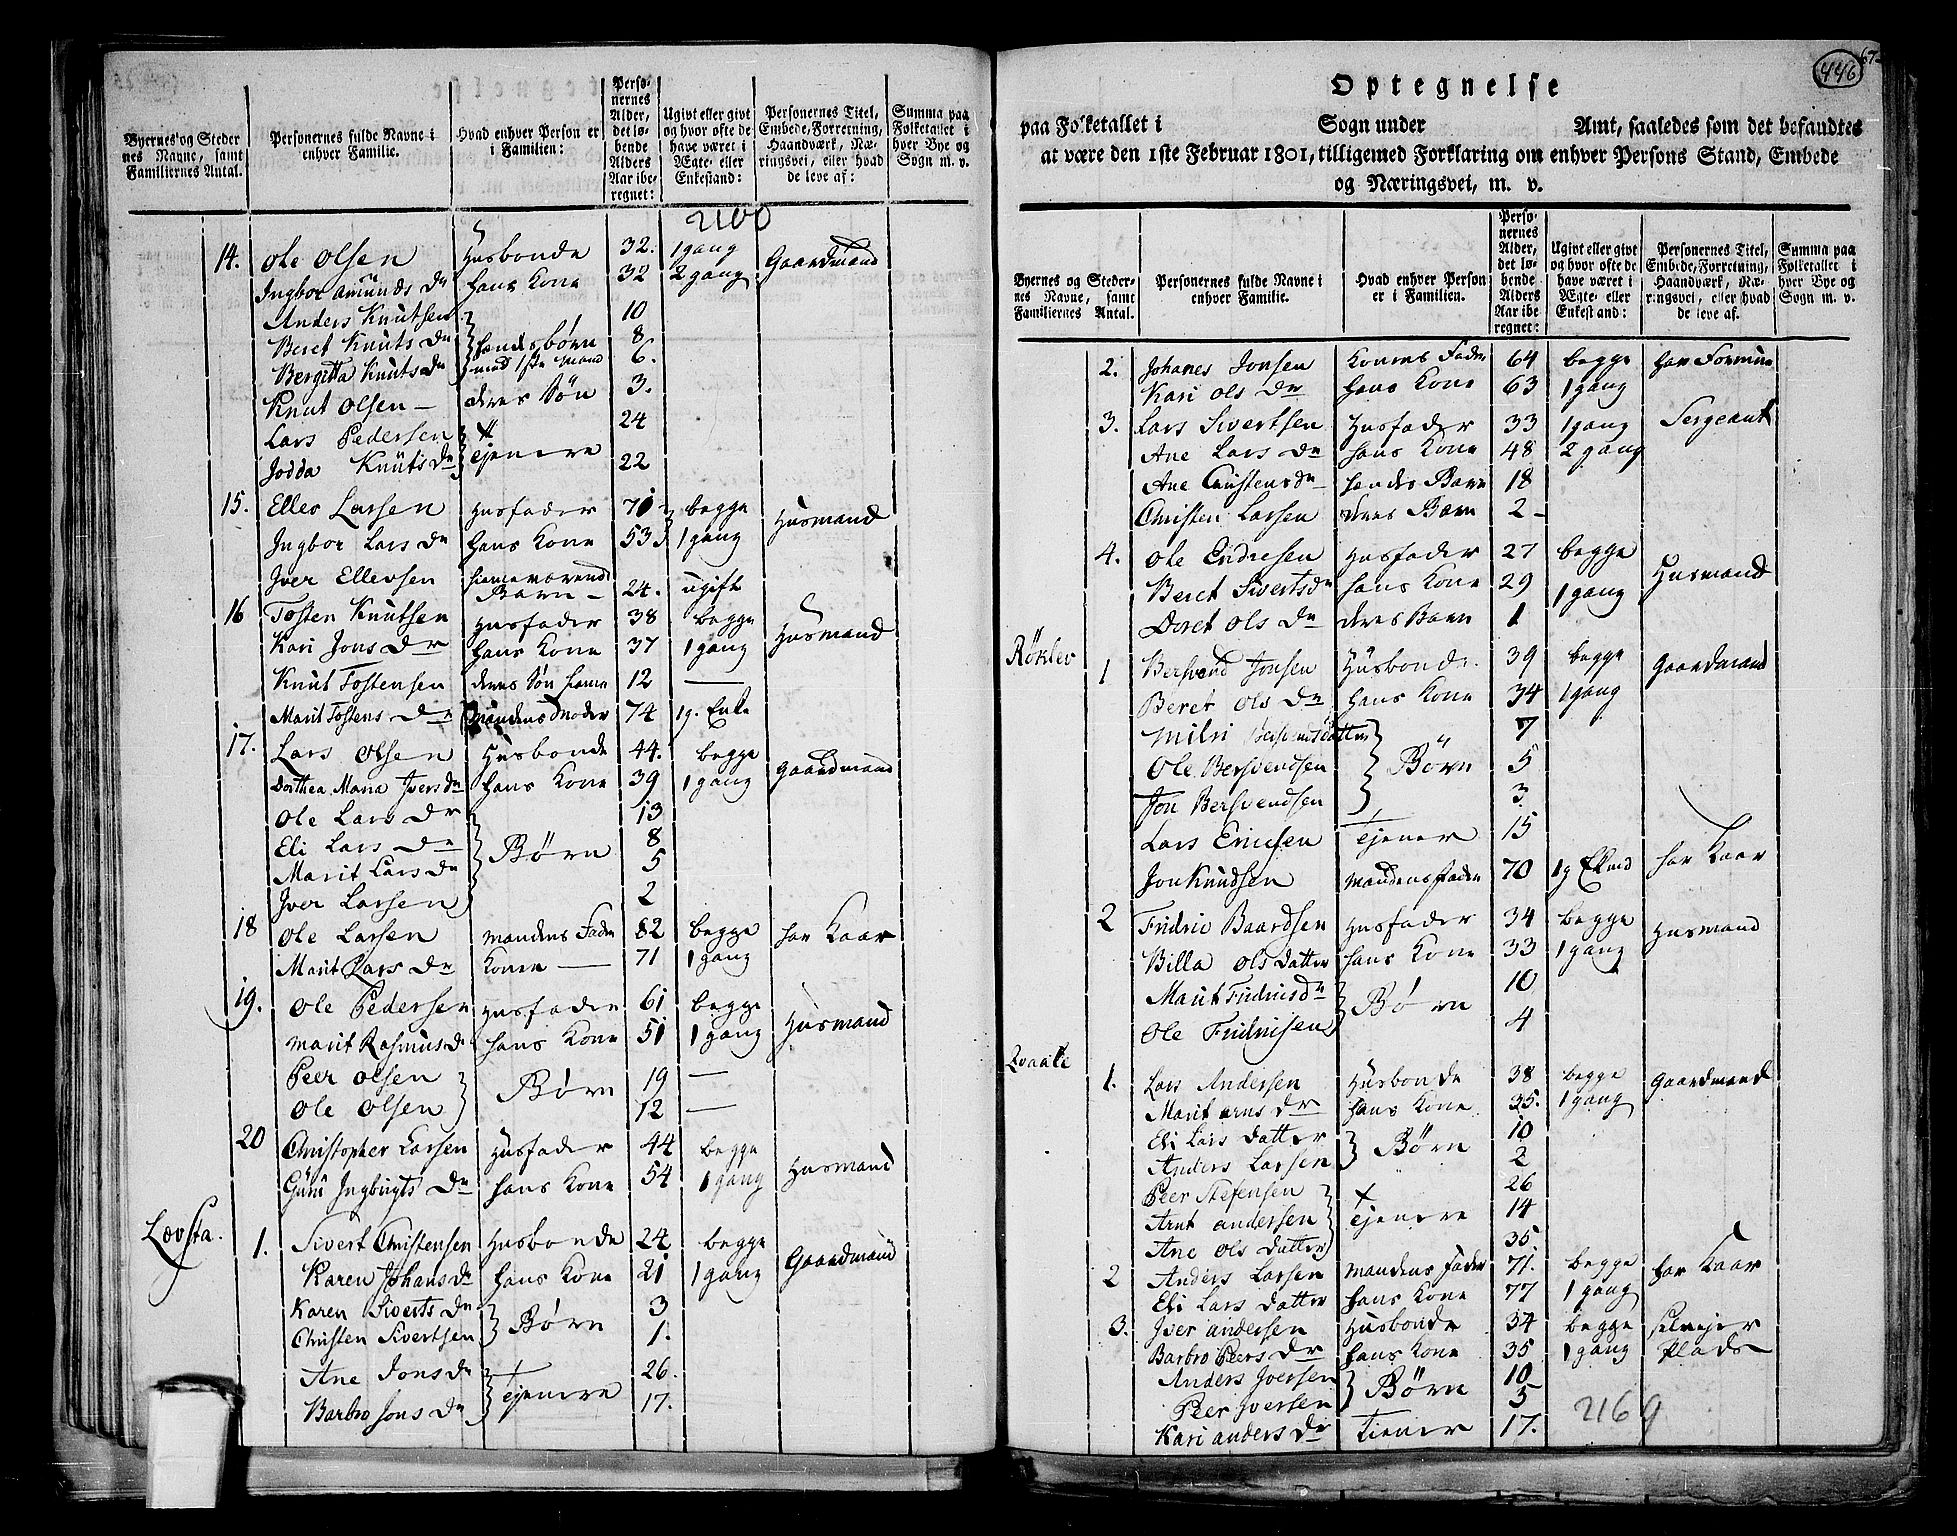 Byernes og Steder
nes Navne, samt
Familiernes Antal.
Personernes fulde Navne i
enhver Familie.
Hvad enhver Person er
i Familien:
Perso-
nernes
Alder,
det lø-
bende
Alders
Aar ibe-
regnet:
Ugivt eller givt
og hvor ofte de
have været i
Ægte- eller
Enkestand:
Personernes Titel,
Embede, Forretning,
Haandværk, Næ-
ringsvei, eller hvad
de leve af:
Summa paa
Folketallet i
hver Bye og
Sogn m. v.
2160
14. Ole Olsen Husbonde 32. 1 gang Gaardmand
Ingbor Amunds Dr hans Kone 32 2 gang
Anders Knutsen 10
Beret Knuts Dr hendes børn 8
Bergitta Knuts Dr med 1ste Mand 6.
Knut Olsen deres Søn 3.
Lars Pedersen 24
Jodda Knuts Dr tjenere 22
15. Ellev Larsen Husfader 71 begge Husmand
Ingbor Lars Dr hans Kone 53 1 gang
Iver Ellevsen hiemmeværende Barn 24. ugift
16 Tosten Knutsen Husfader 38 begge Husmand
Kari Jons Dr hans Kone 37 1 gang
Knut Tostensen deres Søn hiema 12
Marit Tostens Dr Mandens Moder 74 1g. Enke
17. Lars Olsen Husbonde 44. begge Gaardmand
Dorthea Maria Ivers Dr hans Kone 39 1 gang
Ole Lars Dr 13
Eli Lars Dr Børn 8
Marit Lars Dr 5
Iver Larsen 2
18 Ole Larsen Mandens Fader 82 begge har Kaar
Marit Lars Dr Kone 71 1 gang
19. Ole Pedersen Husfader 61 begge Husmand
Marit Rasmus D hans Kone 51 1 gang
Peer Olsen Børn 19
Ole Olsen 12
20 Christopher Larsen Husfader 44 begge Husmand
Guru Ingbrigts Dr hans Kone 54 1 gang
Løvsta. 1. Sivert Christensen Husbonde 24 begge Gaardmand
Karen Johans Dr hans Kone 21 1 gang
Karen Siverts Dr Børn 3
Christen Sivertsen 1.
Ane Jons Dr tjenere 26.
Barbro Jons Dr 17.
446
67
Optegnelse
paa Folketallet i Sogn under Amt, saaledes som det befandtes
at være den 1ste Februar 1801, tilligemed Forklaring om enhver Persons Stand, Embede
og Næringsvei, m. v.
Byernes og Steder-
nes Navne, samt
Familiernes Antal.
Personernes fulde Navne i
enhver Familie.
Hvad enhver Person
er i Familien.
Perso-
nernes
Alder,
det lø-
bende
Alders
Aar ibe-
regnet:
Ugivt eller givt
og hvor ofte de
have været i
Ægte- eller
Enkestand:
Personernes Titel,
Embede, Forretning,
Haandværk, Næ-
ringsvei, eller hvad
de leve af.
Summa paa
Folketallet i
hver Bye og
Sogn m. v.
2. Johanes Jonsen Konens Fader 64 begge har Formue
Kari Ols Dr hans Kone 63 1 gang
3. Lars Sivertsen Husfader 33 1 gang Sergeant
Ane Lars Dr hans Kone 48 2 gang
Ane Christensdr hendes Barn 18
Christen Larsen deres Barn 2
4. Ole Endresen Husfader 27 begge Husmand
Beret Sivertsdr hans Kone 29 1 gang
Doret Ols Dr deres Barn 1
Røkler 1 Bersvend Jonsen Husbonde 39 begge Gaardmand
Beret Ols Dr hans Kone 34 1 gang
Milri Bersvendsdatter 7
Ole Bersvendsen Børn 5
Jon Bersvendsen 3
Lars Ericsen tjener 15
Jon Knudsen Mandens fader 70 1g Ekmd har Kaar
2 Fridric Baardsen Husfader 34 begge Husmand
Billa Ols Datter hans Kone 33 1 gang
Marit Fridricsdr Børn 10
Ole Fridricsen 4
Qvaale 1. Lars Andersen Husbonde 38 begge Gaardmand
Marit Arns Dr hans Kone 35. 1 gang
Eli Lars Datter Børn 10
Anders Larsen 2
Peer Stefensen 26
Arnt Andersen tjenere 14
Ane Ols Datter 35
2 Anders Larsen Mandens Fader 71. begge har Kaar
Eli Lars Datter hans Kone 77 1 gang
3. Iver Andersen Husbonde 34 begge selvejer
Barbro Peers Dr hans Kone 35 1 gang Plads
Anders Iversen Børn 10
Peer Iversen 5
Kari Anders Dr Tiener 17.
2169